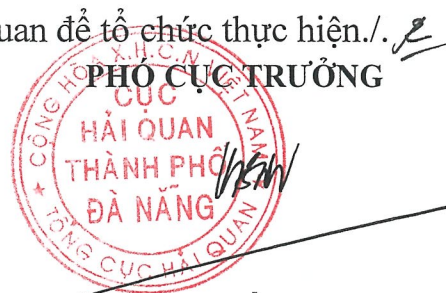 uan để tổ chức thực hiện./.
PHÓ CỤC TRƯỞNG
CỘNG HÒA X.H.C.N VIỆT NAM
CỤC
HẢI QUAN
THÀNH PHỐ
ĐÀ NẴNG
★ TỔNG CỤC HẢI QUAN ★